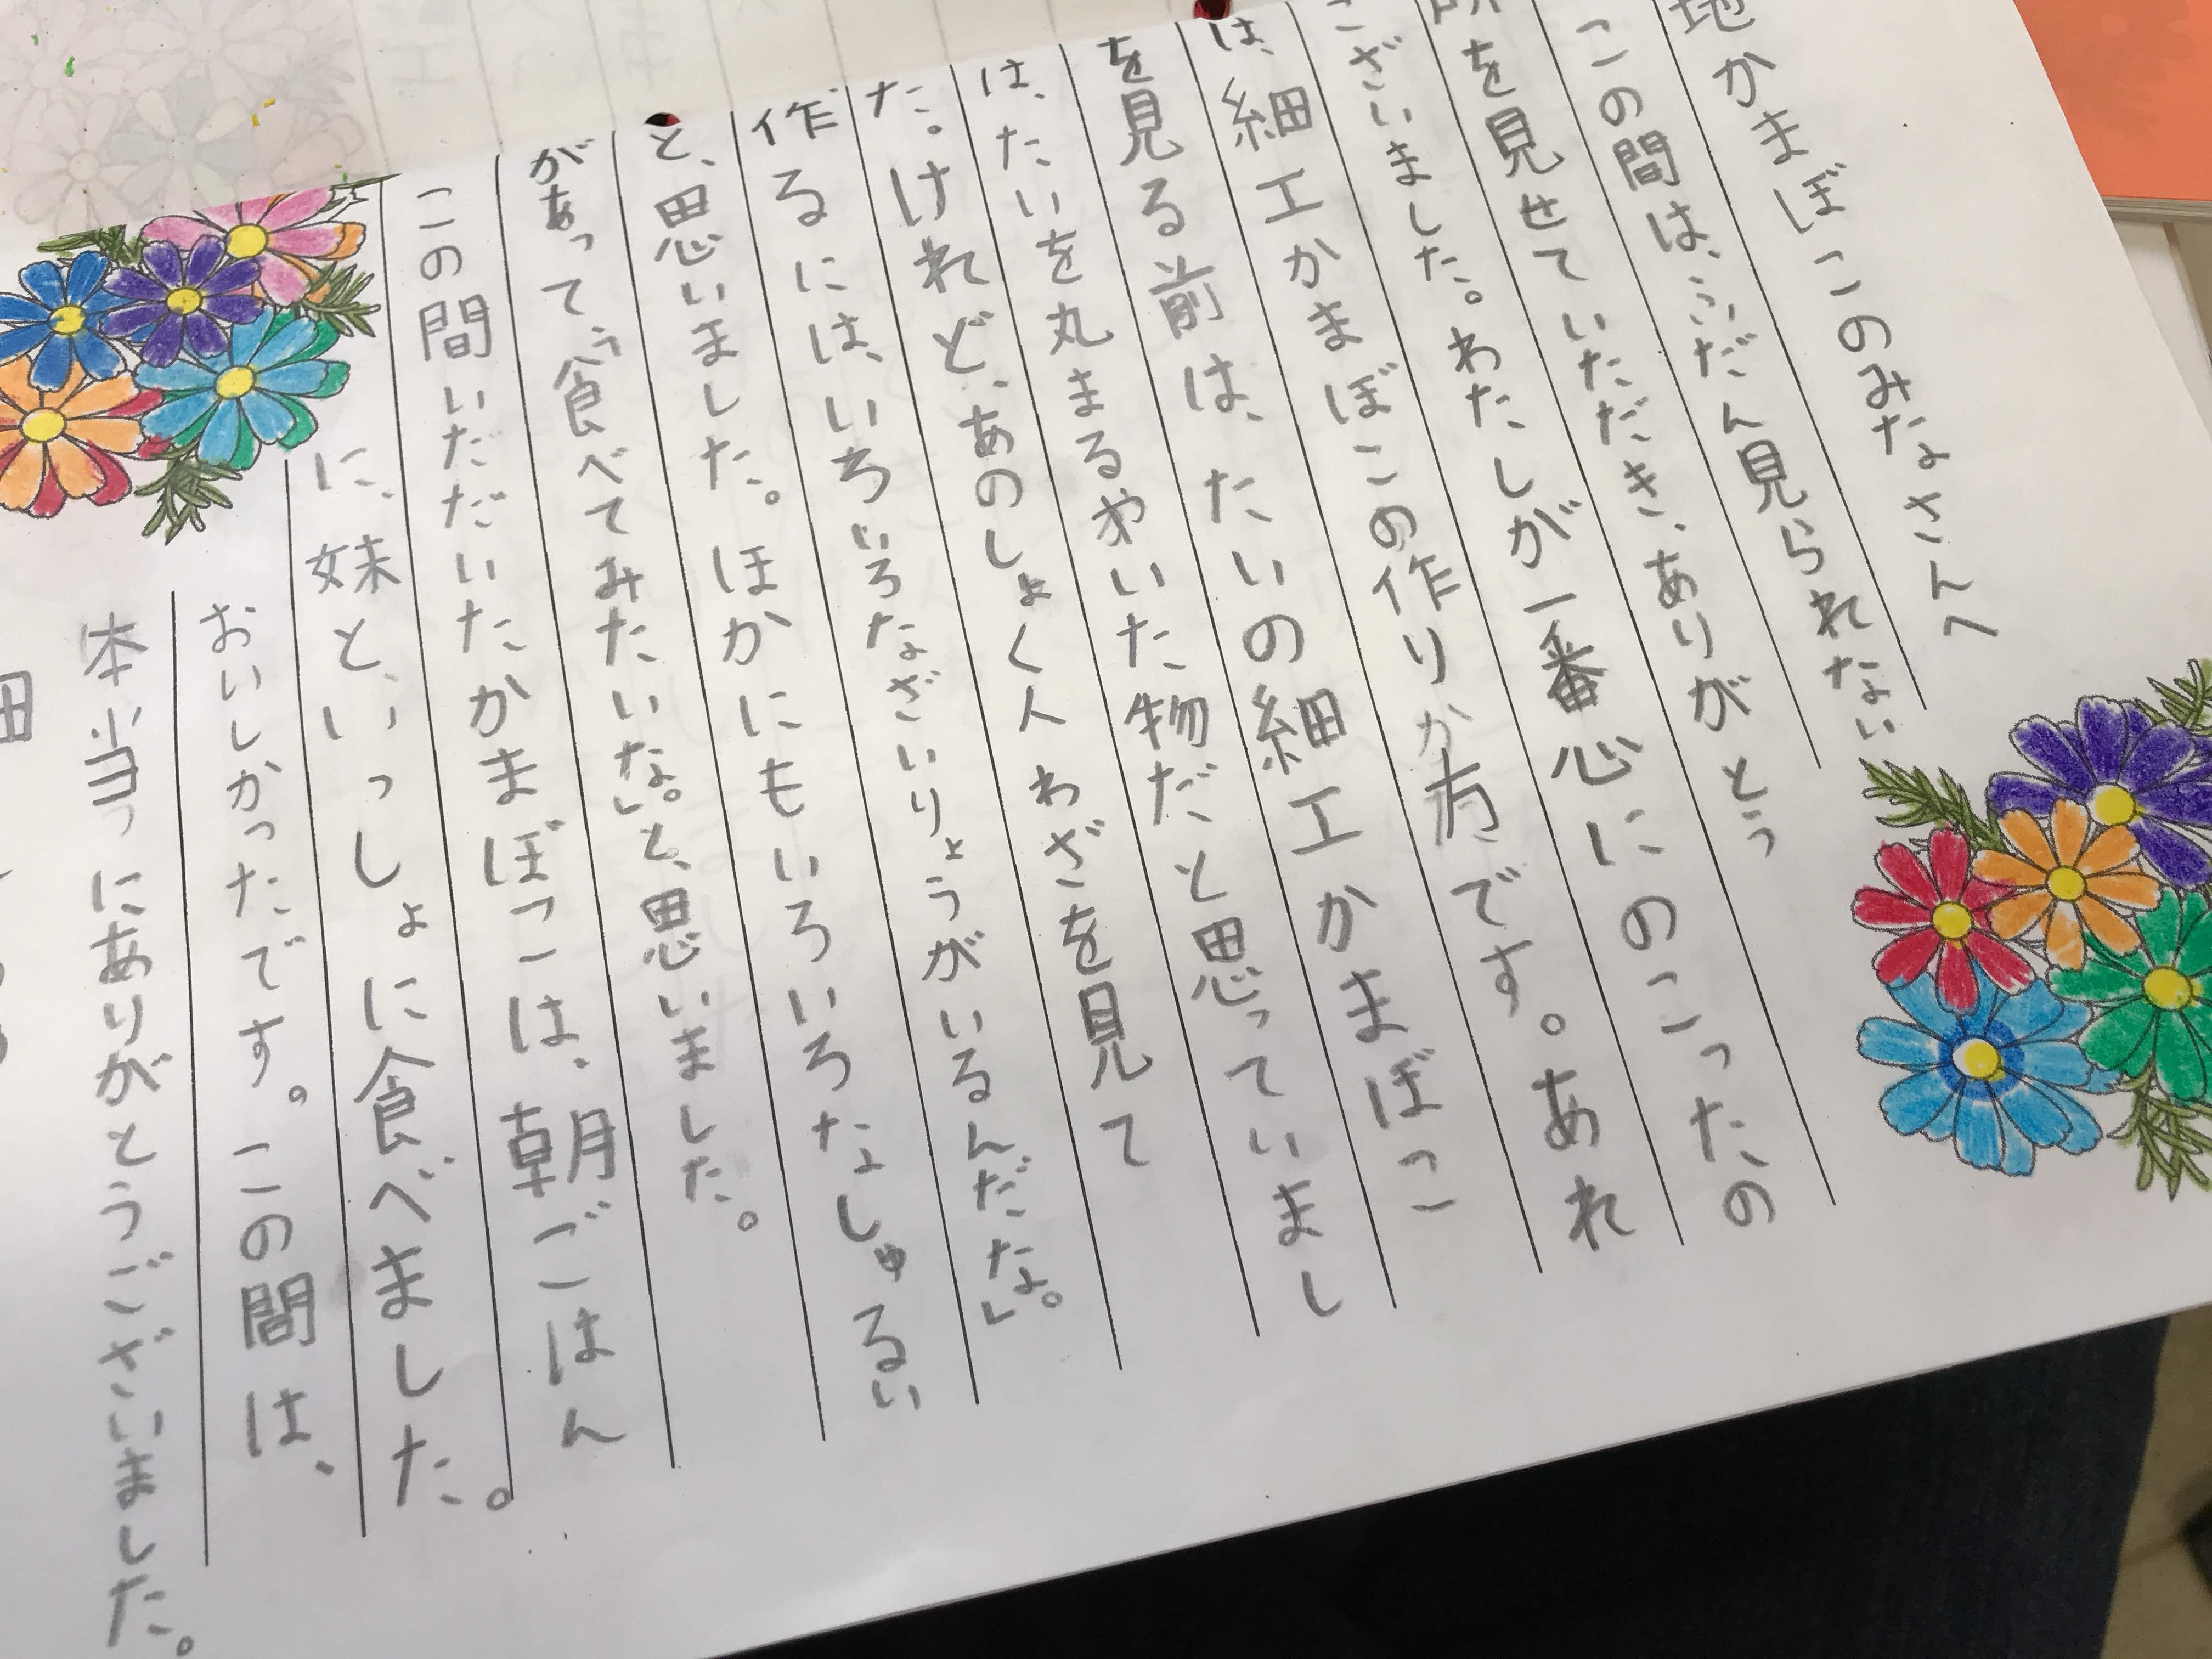 地かまぼこのみなさんへ
この間は、ふだん見られない
所を見せていただき、ありがとう
ございました。わたしが一番心にのこったの
は、細工かまぼこの作りか方です。あれ
を見る前は、たいの細工かまぼこ
は、たいを丸まるやいた物だと思っていまし
た。けれど、あのしょく人わざを見て
作るには、いろいろなざいりょうがいるんだな。」
と、思いました。ほかにもいろいろなしゅるい
があって、「食べてみたいな。」と、思いました。
この間いだだいたかまぼこは、朝ごはん
に、妹と、いっしょに食べました。
おいしかったです。この間は、
本当にありがとうございました。
田